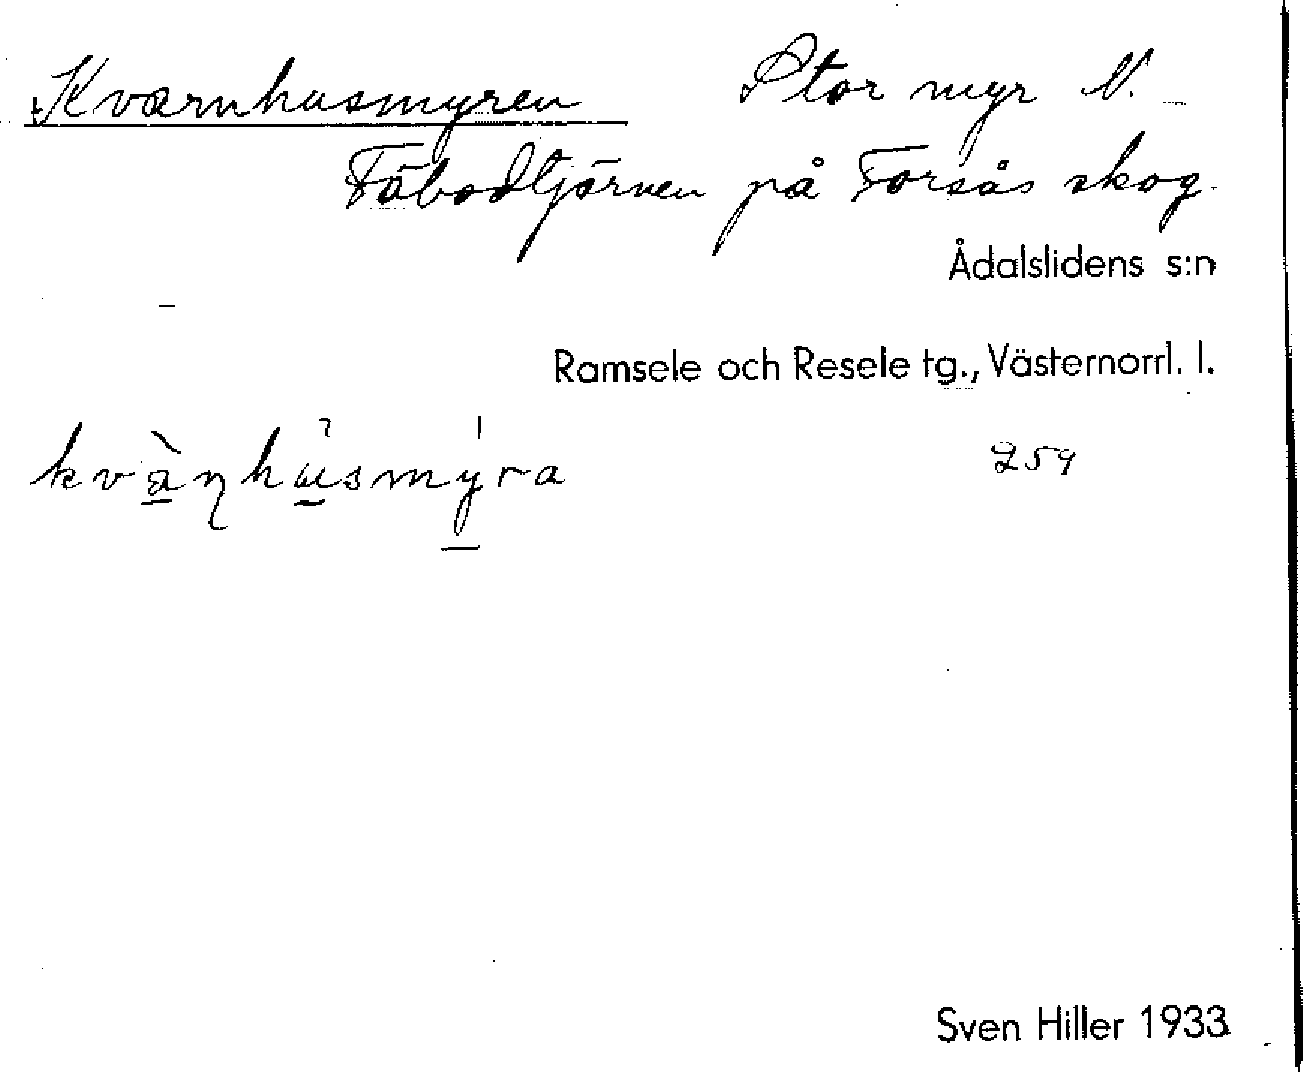 Kvarnhusmyren Stor myr N.
Fäbodtjärnen på Forsås skog
Ådalslidens s:n
Ramsele och Resele tg., Västernorrl. l.
259
Sven Hiller 1933